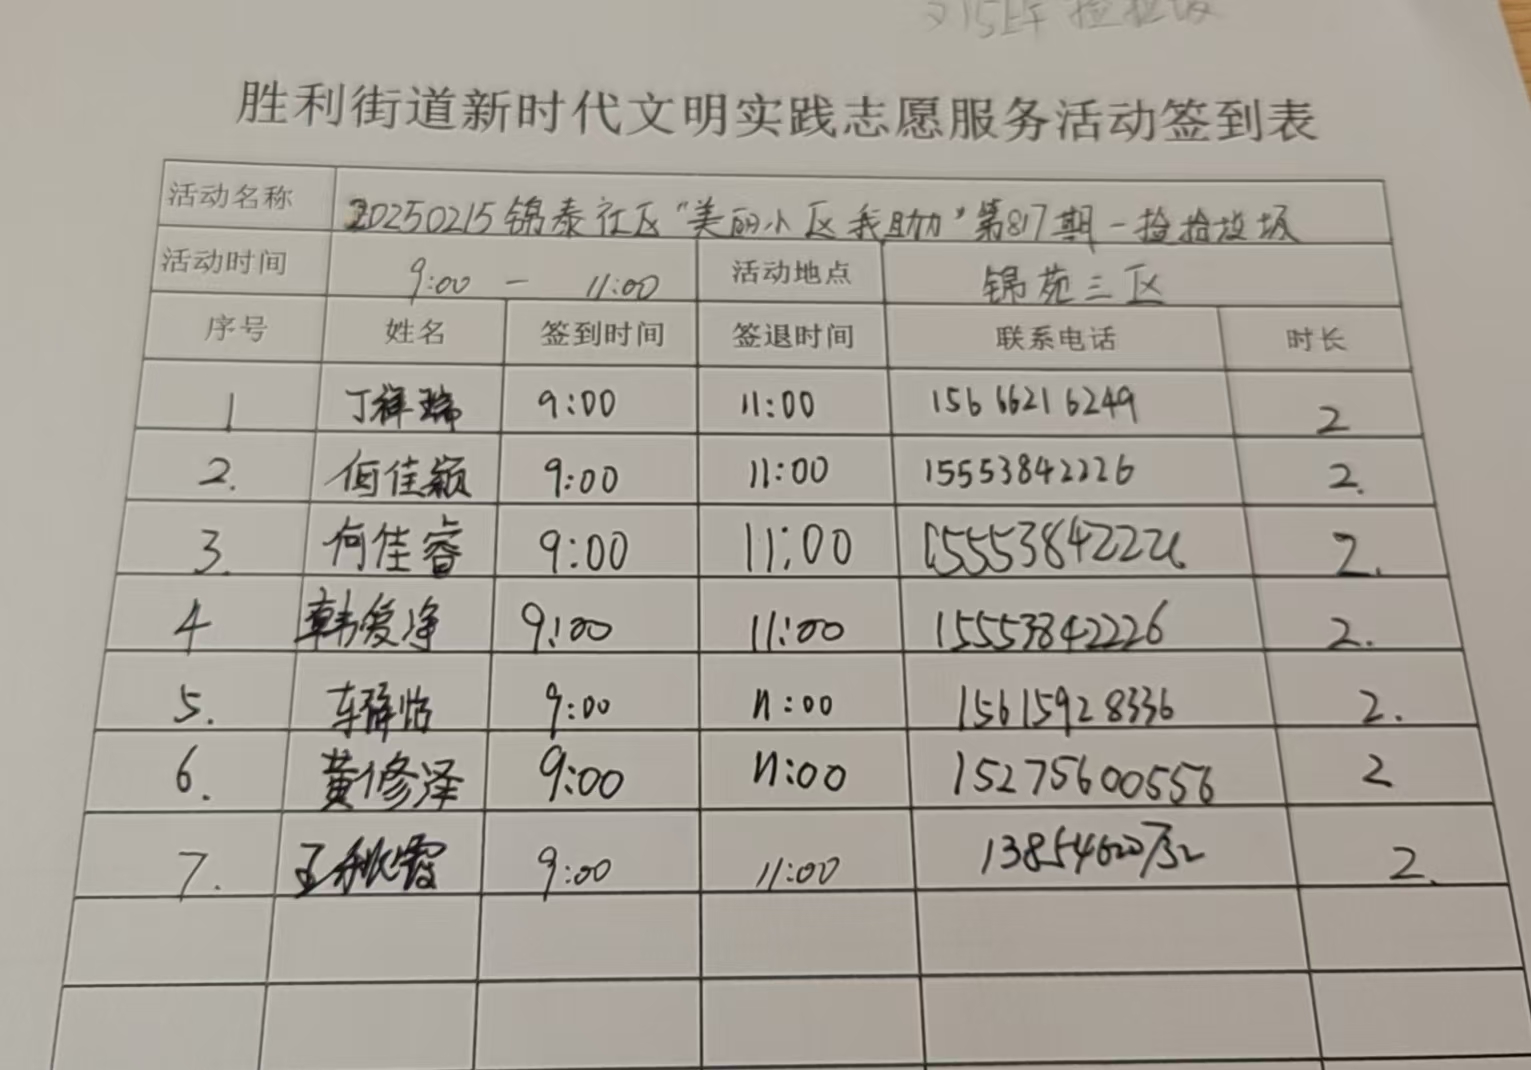 胜利街道新时代文明实践志愿服务活动签到表
活动名称 20250215锦泰社区“美丽小区我助力”第817期-捡捡垃圾
活动时间 9:00 - 11:00 活动地点 锦苑三区
序号 姓名 签到时间 签退时间 联系电话 时长
1 丁祥瑞 9:00 11:00 15666216249 2
2. 何佳颖 9:00 11:00 15553842226 2.
3. 何佳睿 9:00 11:00 15553842226 2.
4 韩爱净 9:00 11:00 15553842226 2.
5. 9:00 11:00 15615928336 2.
6. 黄修泽 9:00 11:00 15275600556 2
7. 王秋霞 9:00 11:00 2.